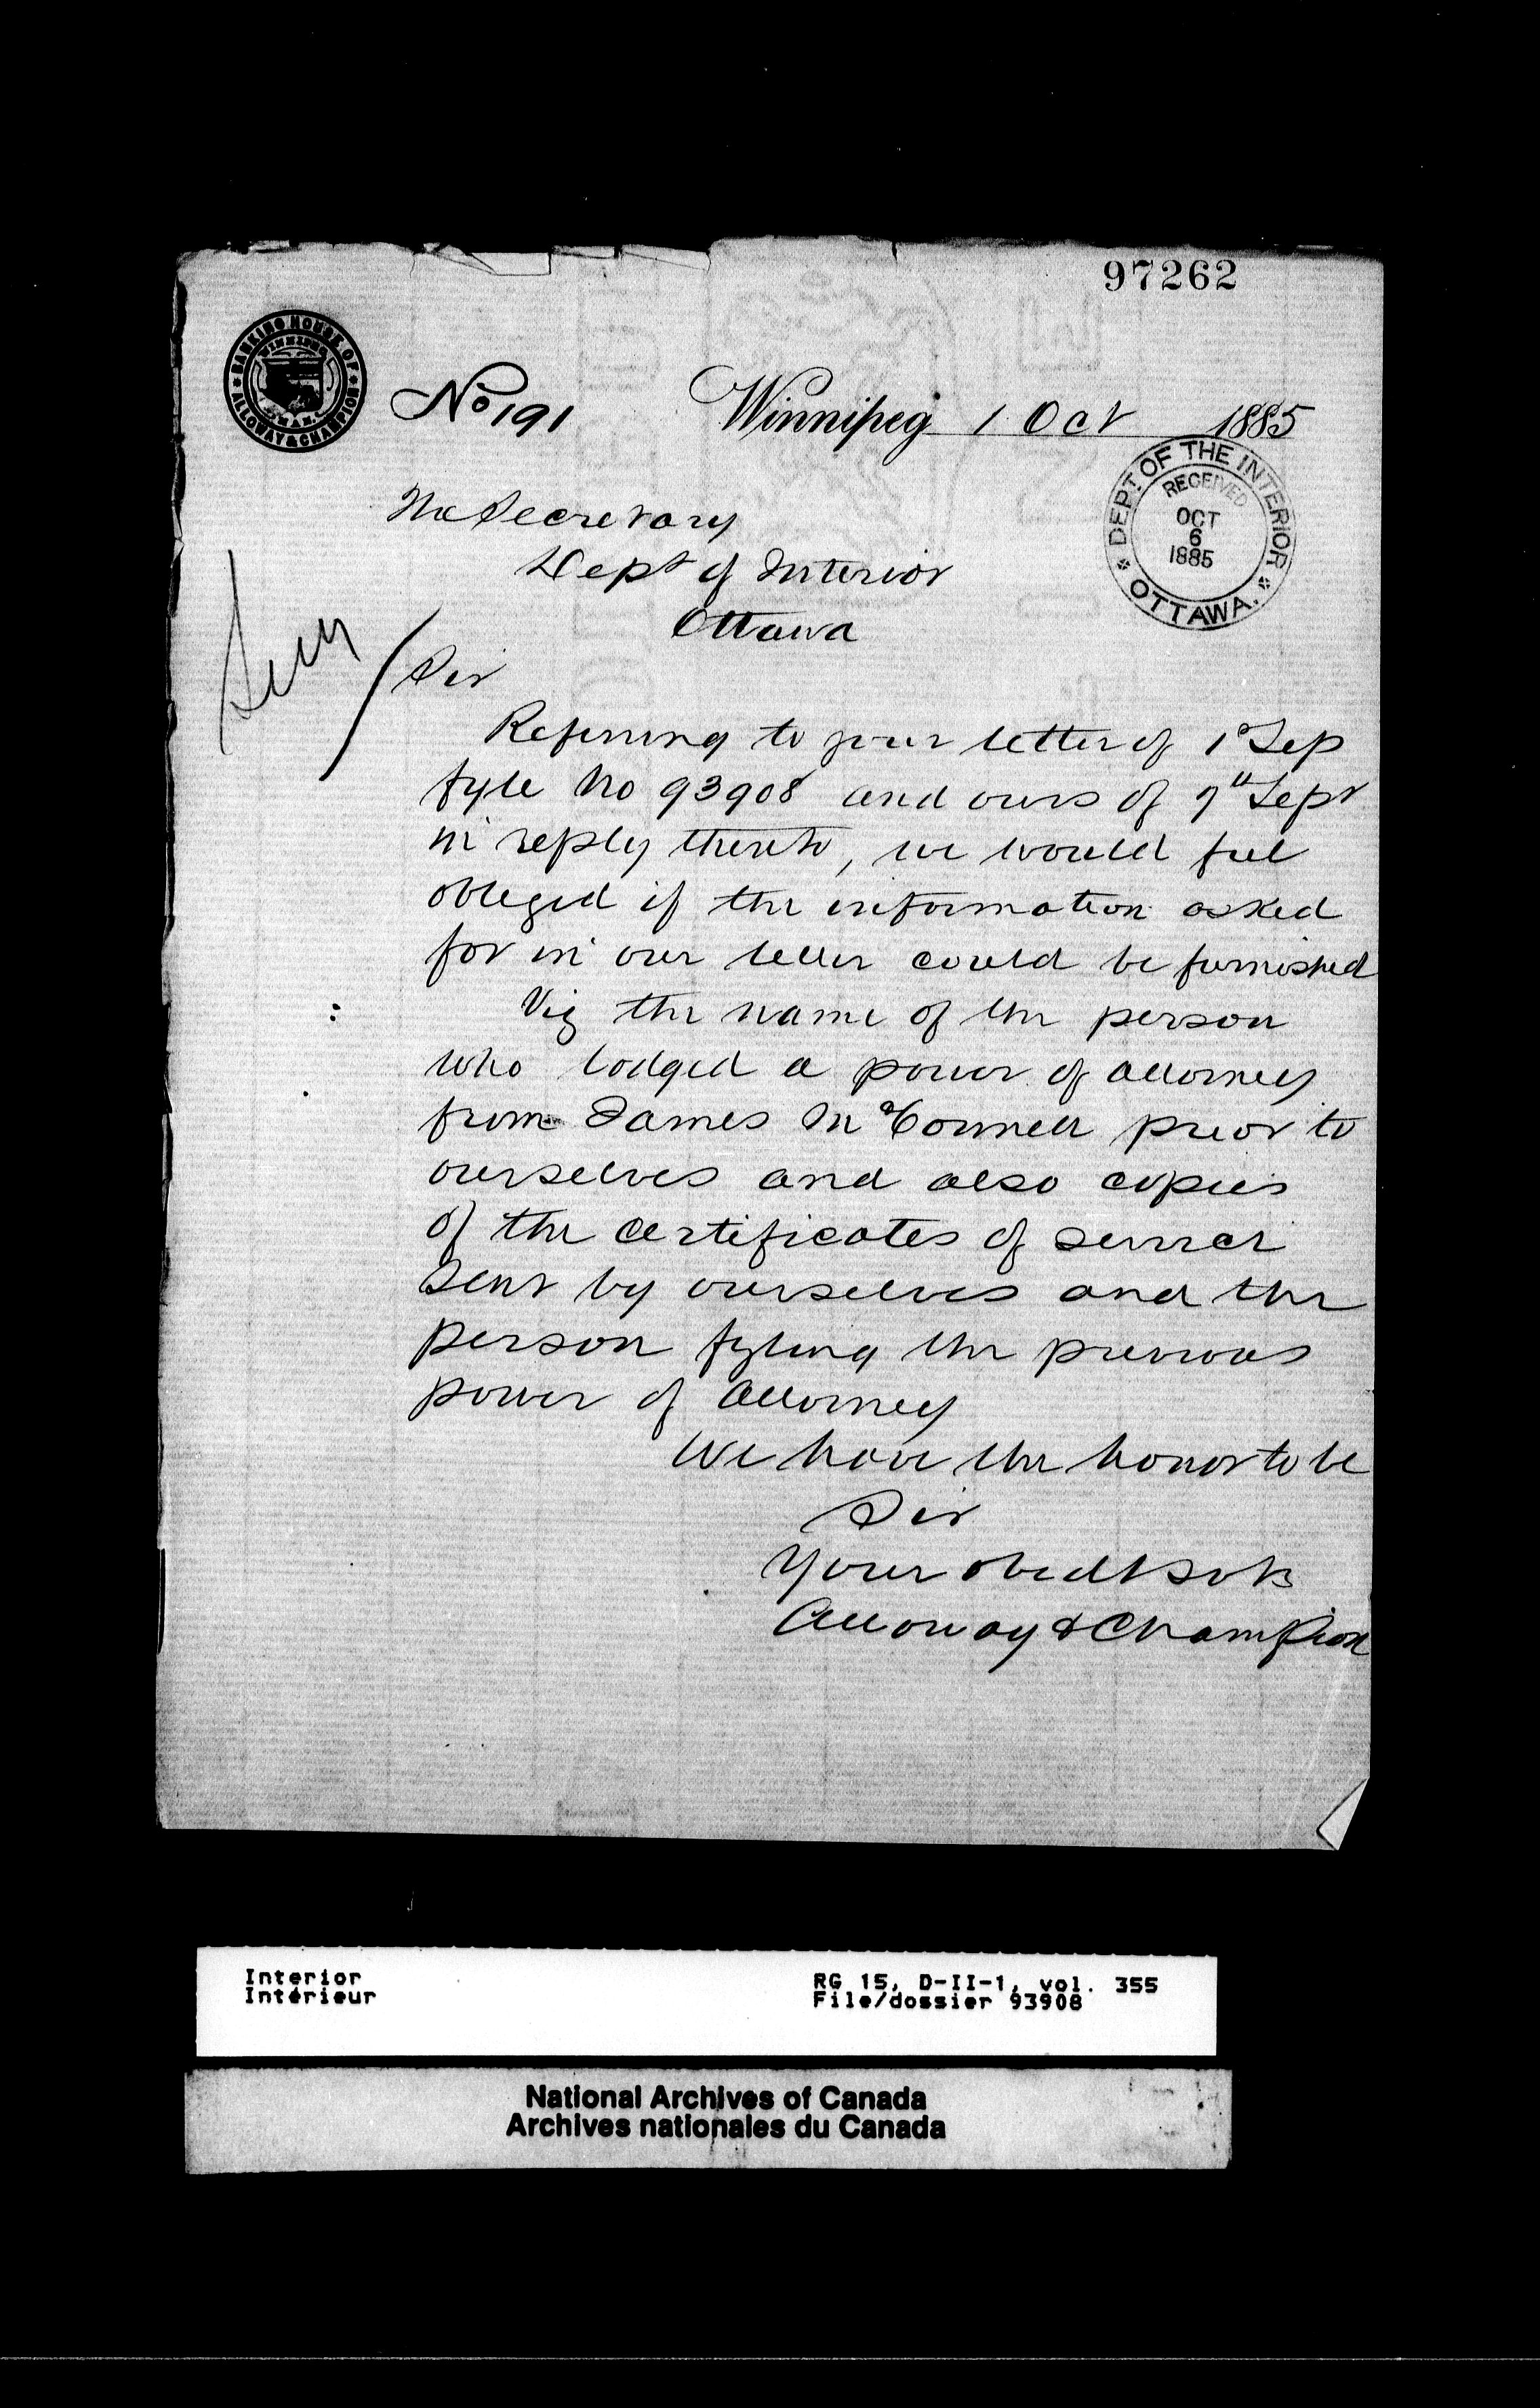 97262
BANKING HOUSE OF ALLOWAY & CHAMPION
WINNIPEG
MAN.
No 191 Winnipeg 1 Oct 1885
DEPT. OF THE INTERIOR
RECEIVED
OCT
6
1885
OTTAWA.
The Secretary
Dept of Interior
Ottawa
Sir
Referring to your letter of 1st Sep
fyle No 93908 and ours of 7th Sept
in reply thereto, we would feel
obliged if the information asked
for in our letter could be furnished
Viz the name of the person
who lodged a power of attorney
from James McConnell prior to
ourselves and also copies
of the certificates of service
sent by ourselves and the
person fyling the previous
power of Attorney
We have the honor to be
Sir
Your obedt Svts
Alloway & Champion
Interior
Intérieur
RG 15, D-II-1, vol. 355
File/dossier 93908
National Archives of Canada
Archives nationales du Canada